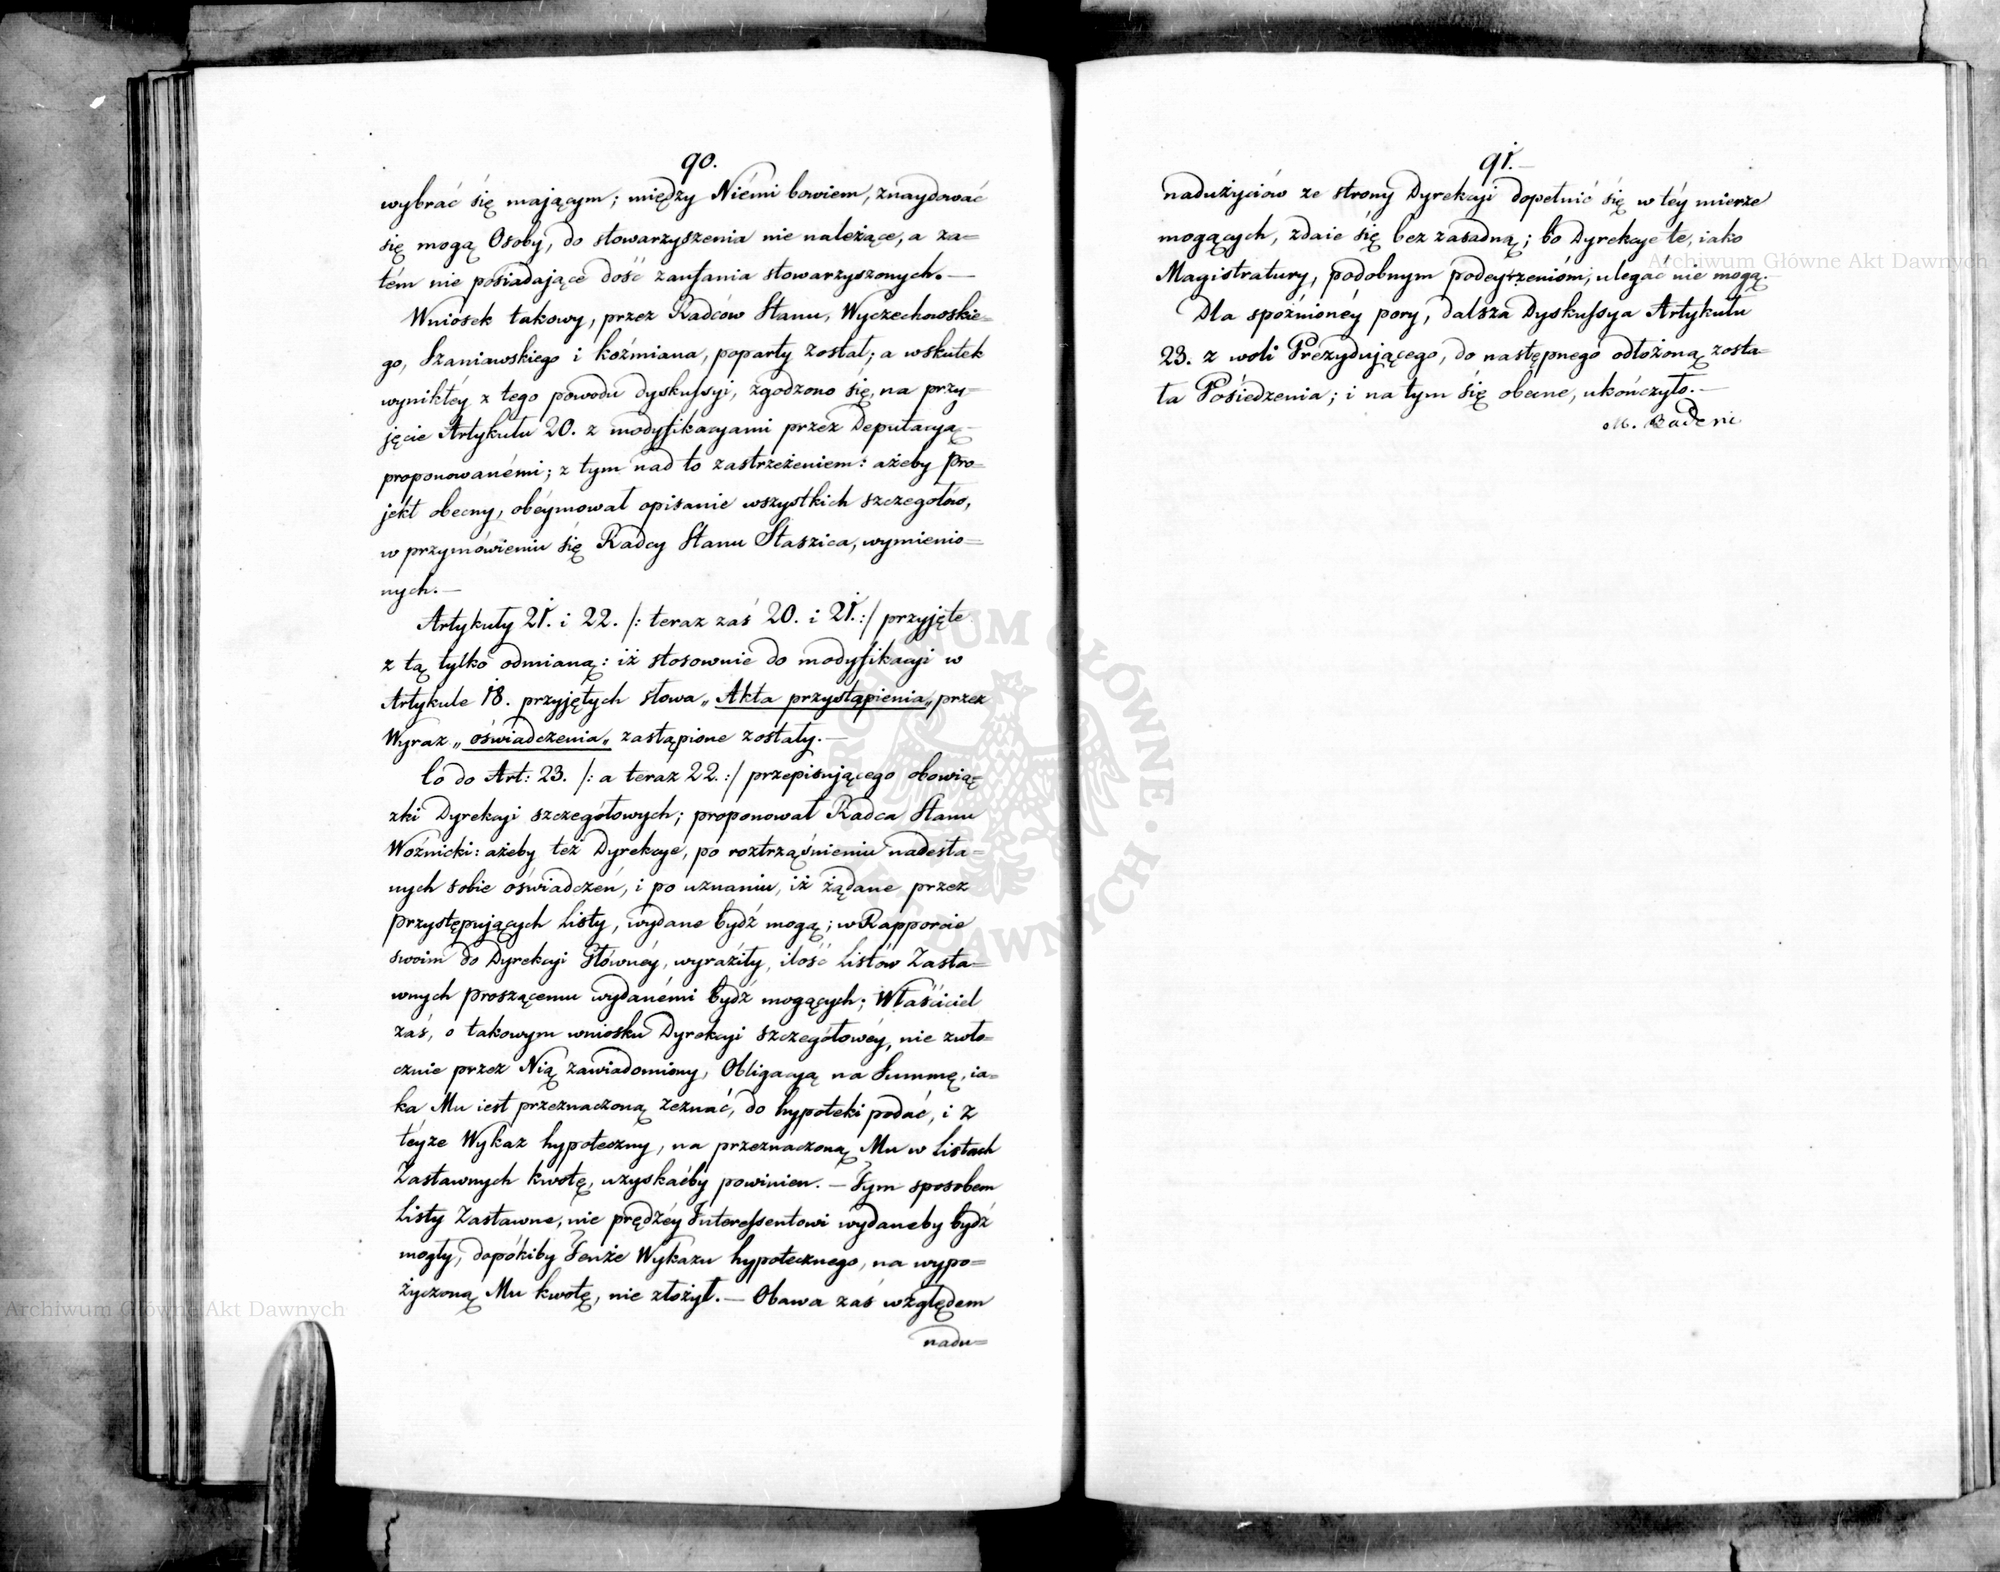 90.
wybrać się mającym; między Niémi bowiem, znaydować
się mogą Osoby, do stowarzyszenia nie należące, a za=
tém nie posiadające dość zaufania stowarzyszonych. —
Wniosek takowy, przez Radców Stanu, Wyczechowskie=
go, Szaniawskiego i Koźmiana, poparty został; a wskutek
wynikłéy z tego powodu dyskussyi, zgodzono się, na przy=
jęcie Artykułu 20. z modyfikacyami przez Deputacyą —
proponowanémi; z tym nad to zastrzeżeniem: ażeby Pro=
jekt obecny, obéymował opisanie wszystkich szczegółów,
w przymówieniu się Radcy Stanu Staszica, wymienio=
nych. —
Artykuły 21. i 22. /: teraz zaś 20. i 21. :/ przyjęte
z tą tylko odmianą: iż stosownie do modyfikacyi w
Artykule 18. przyjętych słowa „Akta przystąpienia„ przez
Wyraz „oświadczenia„ zastąpione zostały. —
Co do Art: 23. /: a teraz 22. :/ przepisującego obowią=
zki Dyrekcyi szczegółowych; proponował Radca Stanu
Woźnicki: ażeby też Dyrekcye, po roztrząśnieniu nadesła=
nych sobie oświadczeń, i po uznaniu, iż żądane przez
przystępujących Listy, wydane bydź mogą; w Rapporcie
swoim do Dyrekcyi Głównéy, wyraziły, ilość Listów Zasta=
wnych proszącemu wydanémi bydź mogących; Właściciel
zaś, o takowym wniosku Dyrekcyi szczegółowéy, nie zwło=
cznie przez Nią zawiadomiony, Obligacyą na Summę, ia=
ka Mu iest przeznaczoną zeznać, do hypoteki podać, i z
téyże Wykaz hypoteczny, na przeznaczoną Mu w Listach
Zastawnych kwotę, uzyskaćby powinien. — Tym sposobem
Listy Zastawne, nie prędzéy Interessentowi wydaneby bydź
mogły, dopókiby Tenże Wykazu hypotecznego, na wypo=
życzoną Mu kwotę, nie złożył. — Obawa zaś względem
nadu=
91. —
nadużyciów ze strony Dyrekcyi dopełnić się w téy mierze
mogących, zdaie się bez zasadną; bo Dyrekcye te, iako
Magistratury, podobnym podeyrzenióm, ulegać nie mogą. —
Dla spóźnionéy pory, dalsza Dyskussya Artykułu
23. z woli Prezydującego, do następnego odłożoną zosta=
ła Posiedzenia; i na tym się obecne, ukończyło. —
M. Badeni
Archiwum Główne Akt Dawnych
Archiwum Główne Akt Dawnych
ARCHIWUM GŁÓWNE · AKT DAWNYCH ·